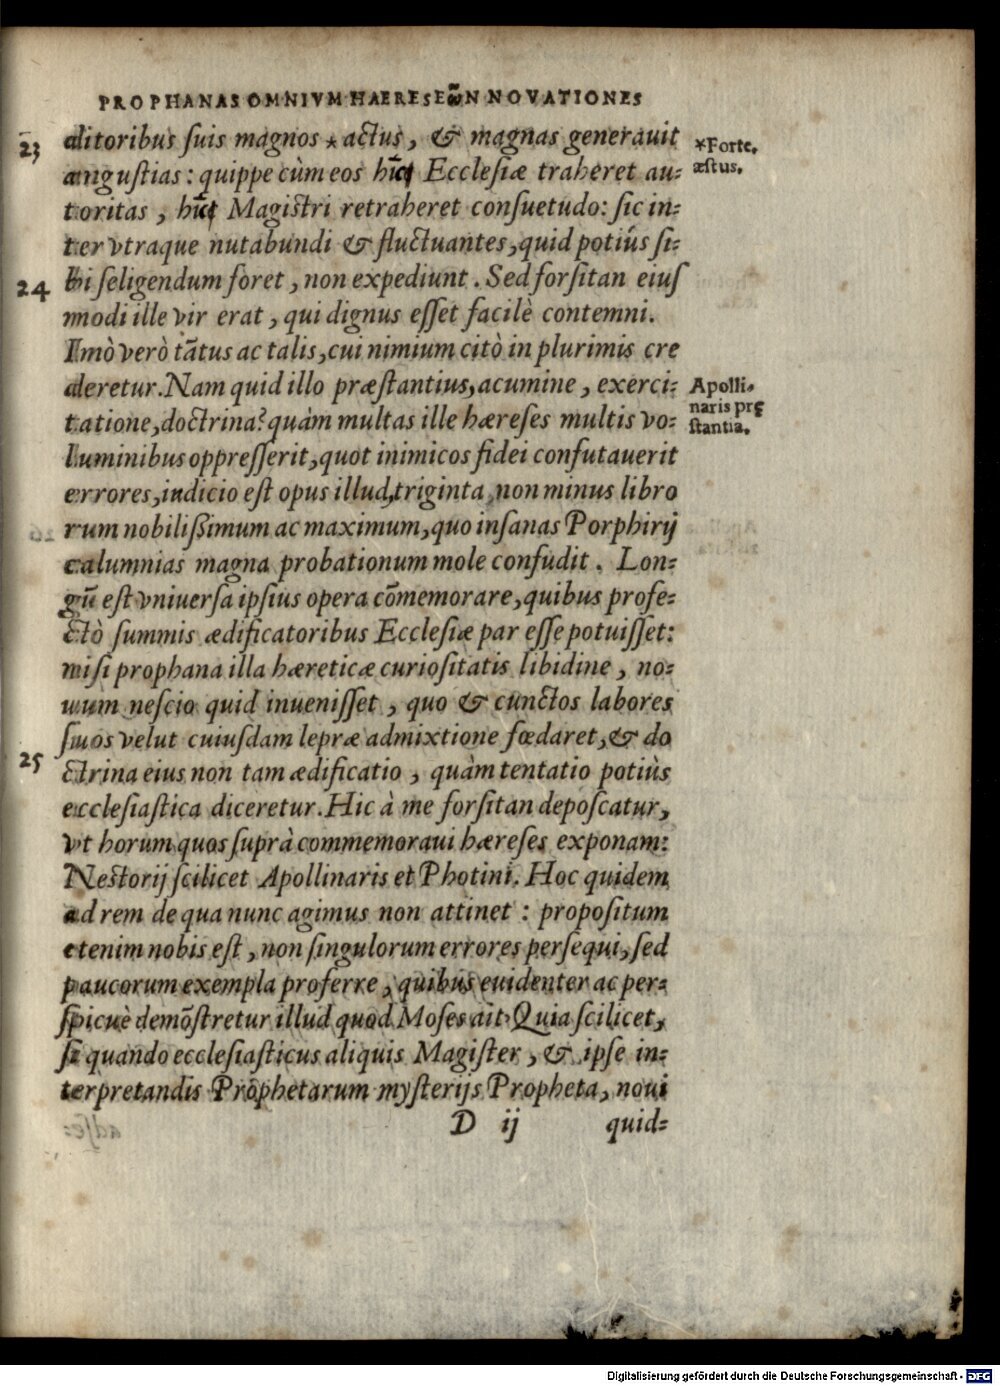 PROPHANAS OMNIVM HAERESEωN NOVATIONES
23 ditoribus suis magnos * actus, & magnas generauit
*Forte.
æstus.
angustias: quippe cùm eos hīc Ecclesiæ traheret au-
toritas, hīc Magistri retraheret consuetudo: sic in-
ter vtraque nutabundi & fluctuantes, quid potiùs si-
24 bi seligendum foret, non expediunt. Sed forsitan eius
modi ille vir erat, qui dignus esset facilè contemni.
Imò verò tātus ac talis, cui nimium citò in plurimis cre
deretur. Nam quid illo præstantius, acumine, exerci-
Apolli-
naris prę
stantia.
tatione, doctrina? quàm multas ille hæreses multis vo-
luminibus oppresserit, quot inimicos fidei confutauerit
errores, indicio est opus illud, triginta non minus libro
rum nobilißimum ac maximum, quo insanas Porphirij
calumnias magna probationum mole confudit. Lon-
gū est vniuersa ipsius opera cōmemorare, quibus profe-
ctò summis ædificatoribus Ecclesiæ par esse potuisset:
nisi prophana illa hæreticæ curiositatis libidine, no-
uum nescio quid inuenisset, quo & cunctos labores
suos velut cuiusdam lepræ admixtione fœdaret, & do
25 ctrina eius non tam ædificatio, quàm tentatio potiùs
ecclesiastica diceretur. Hic à me forsitan deposcatur,
vt horum quos suprà commemoraui hæreses exponam:
Nestorij scilicet Apollinaris et Photini. Hoc quidem
ad rem de qua nunc agimus non attinet: propositum
etenim nobis est, non singulorum errores persequi, sed
paucorum exempla proferre, quibus euidenter ac per-
spicuè demōstretur illud quod Moses ait. Quia scilicet,
si quando ecclesiasticus aliquis Magister, & ipse in-
terpretandis Prophetarum mysterijs Propheta, noui
D ij quid-
Digitalisierung gefördert durch die Deutsche Forschungsgemeinschaft - DFG